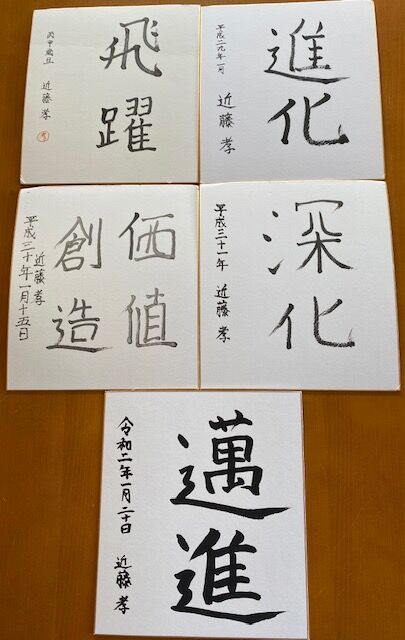 飛躍
丙申歳旦 近藤孝
進化
平成二九年一月 近藤孝
価値
創造
近藤孝
平成三十年一月十五日
深化
平成三十一年 近藤孝
邁進
令和二年一月二十日 近藤孝